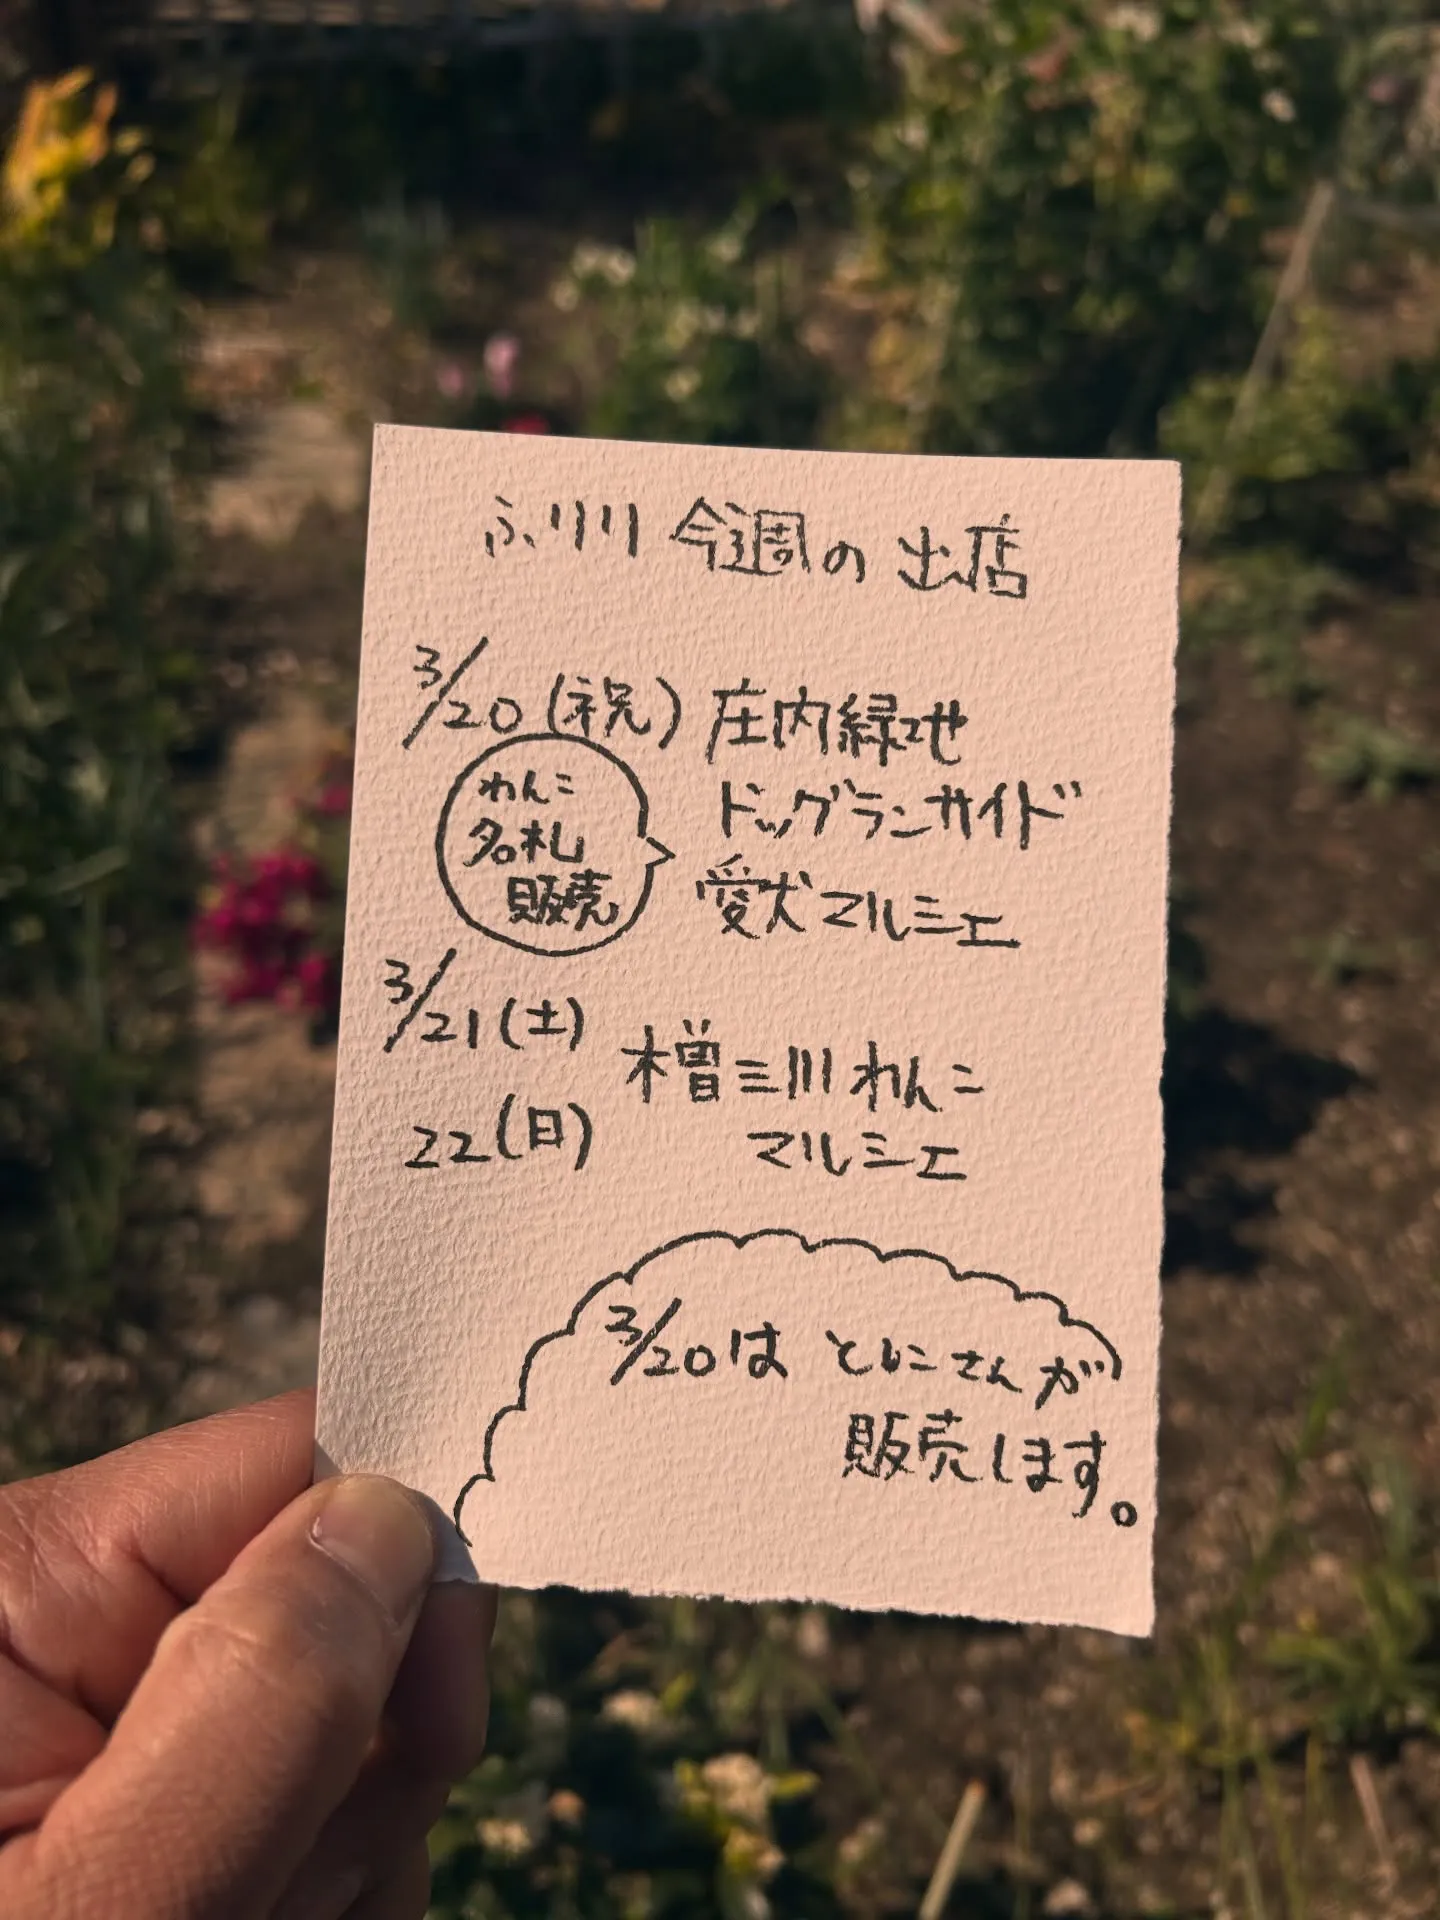 ふ川川 今週の出店
3/20(祝) 庄内緑地
ドッグランサイド
愛犬マルシェ
わんこ
名札
販売
3/21(土)
22(日)
木曽三川わんこ
マルシェ
3/20は としこさんが
販売します。